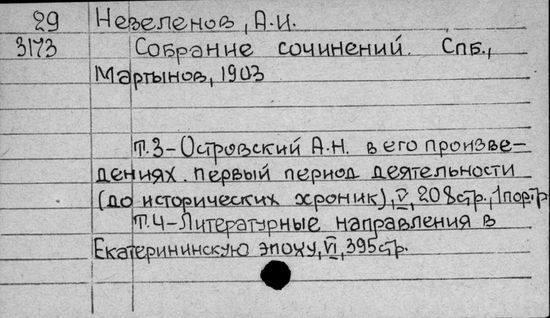 29 Незеленов, А.И.
3173 Собрание сочинений. Спб.,
Мартынов, 1903
Т.3-Островский А.Н. в его произве-
дениях. первый период деятельности
(до исторических хроник), V, 208стр., 1пор.тр
Т.4-Литературные направления в
Екатерининскую эпоху, VI, 395стр.